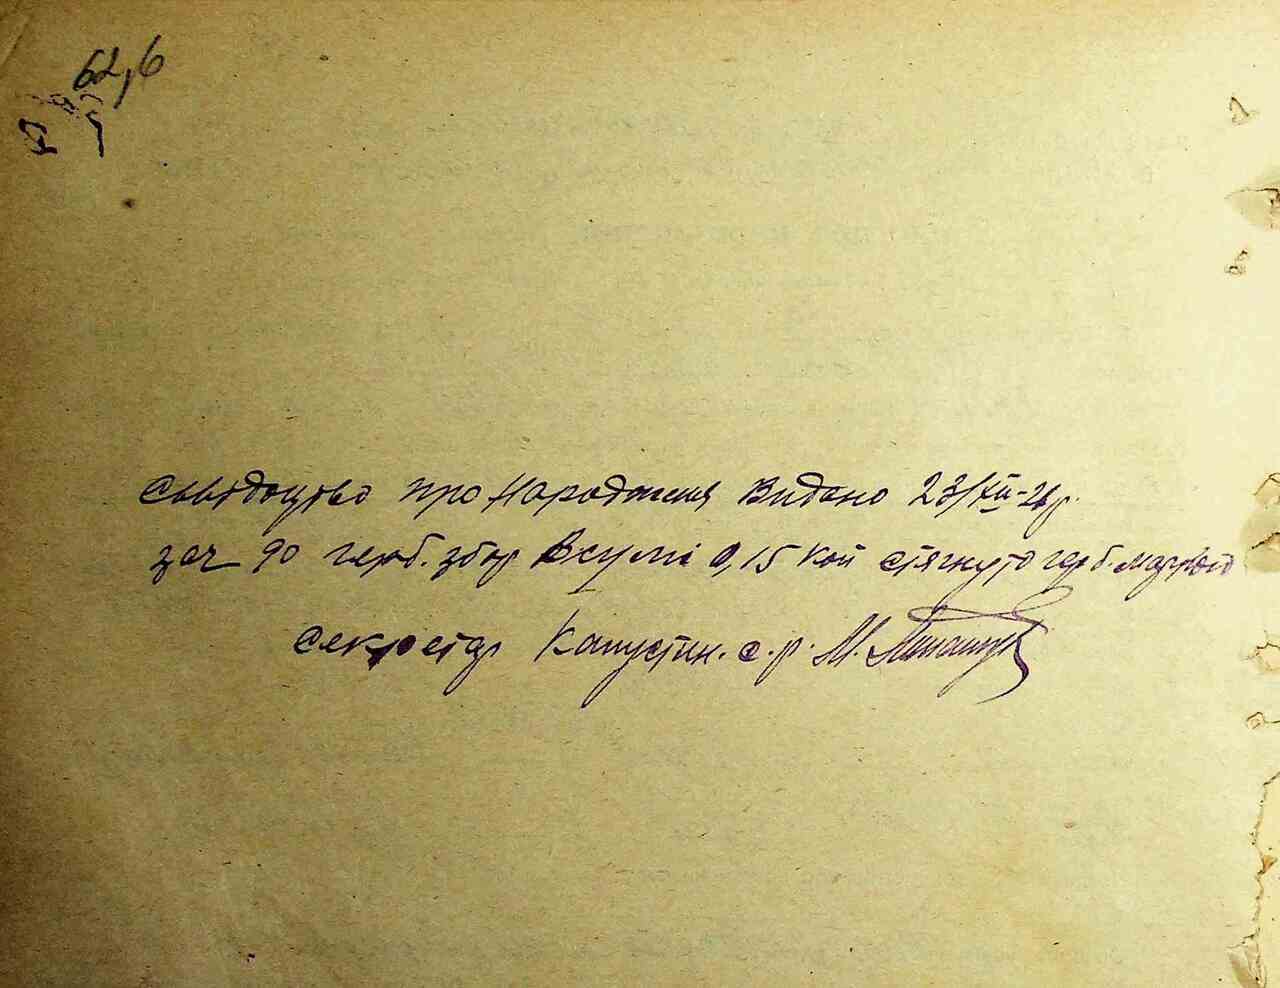 62,6
Свідоцтво про Народження Видано 23/XII-26р.
за № 90 герб. збор Всумі 0,15 коп стягнуто герб. маркою
секретар Капустин. с. р. М.